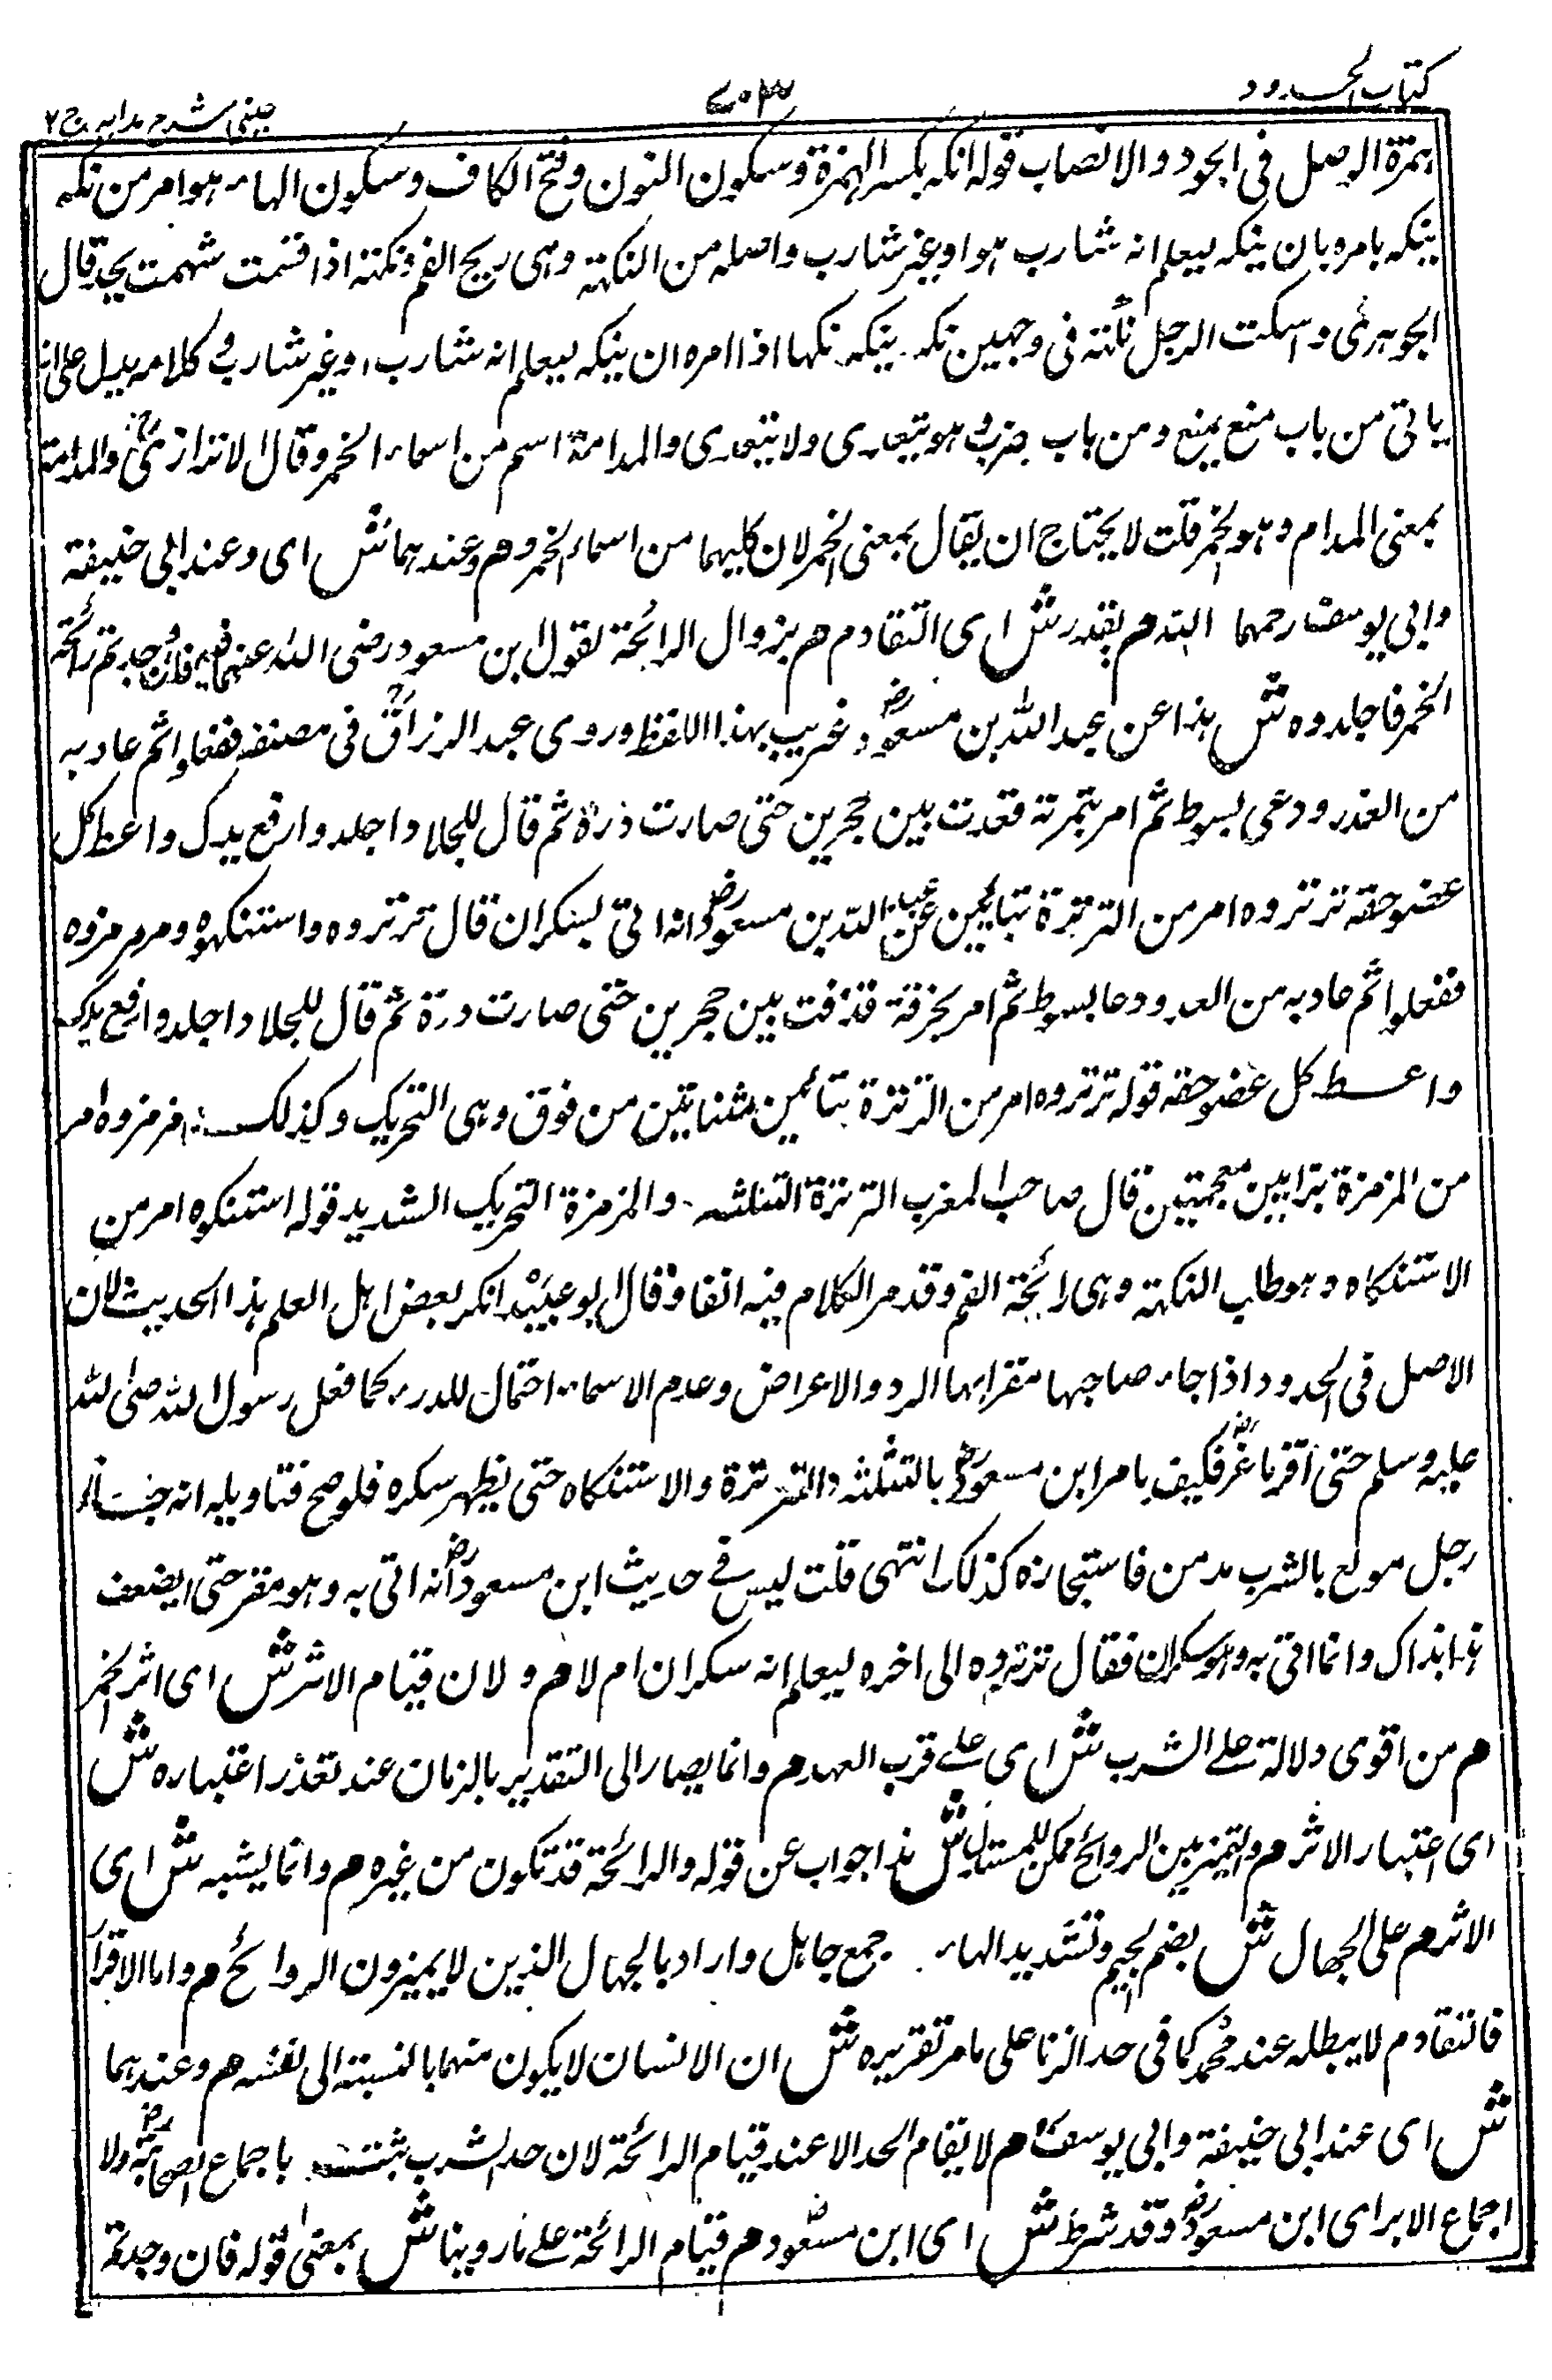 كتاب الحدود
٧٠٣
عينى شرح هدايه ج ٢
همزة الوصل فى الجود والانصاب قوله انكه بكسر الهمزة وسكون النون وفتح الكاف وسكون الهاء هو امر من نكه
ينكه بامره بان ينكه ليعلم انه شارب هو او غير شارب واصله من النكهة وهى ريح الفم ونكهته اذا شممت ريحه قال
الجوهرى واستنكهت الرجل فنكه فى وجهى ينكه نكها اذا امره ان ينكه ليعلم انه شارب او غير شارب وكلامه يدل على انه
ياتى من باب منع يمنع ومن باب ضرب وهو يتعدى ولا يتعدى والمدامة اسم من اسماء الخمر وقال الاترازى والمدامة
بمعنى المدام وهو الخمر قلت لا يحتاج ان يقال بمعنى الخمر لان كليهما من اسماء الخمر وهم وعندهما ش اى وعند ابى حنيفة
وابى يوسف رحمهما الله م يقدر ش اى التقادم م بزوال الرائحة لقول ابن مسعود رضى الله عنهما فيه فان وجدتم رائحة
الخمر فاجلدوه ش هذا عن عبد الله بن مسعود رض غريب بهذا اللفظ وروى عبد الرزاق فى مصنفه ففعلوا ثم عاد به
من الغد ودعى بسوط ثم امر بثمرته فقدت بين حجرين حتى صارت درة ثم قال للجلاد اجلد وارفع يدك واعط كل
عضو حقه ترتروه امر من الترترة بتائين عن عبد الله بن مسعود رض انه اتى بسكران قال ترتروه واستنكهوه ومزمزوه
ففعلوا ثم عاد به من الغد ودعا بسوط ثم امر بخرقة قدفت بين حجرين حتى صارت درة ثم قال للجلاد اجلد وارفع يدك
واعط كل عضو حقه قوله ترتروه امر من الترترة بتائين مثناتين من فوق وهى التحريك وكذلك مزمزوه امر
من المزمزة بزايين معجمتين قال صاحب المغرب الترترة التلتلة والمزمزة التحريك الشديد قوله استنكهوه امر من
الاستنكاه وهو طلب النكهة وهى رائحة الفم وقد مر الكلام فيه انفا وقال ابو عبيد انكر بعض اهل العلم هذا الحديث لان
الاصل فى الحدود اذا جاء صاحبها مقرا بها الرد والاعراض وعدم الاسماء احتمال للدرء كما فعل رسول الله صلى الله
عليه وسلم حتى اقر ماعز رض فكيف يامر ابن مسعود رض بالتلتلة والترترة والاستنكاه حتى يظهر سكره فلو صح فتاويله انه جاء
رجل مولع بالشرب مدمن فاستجازه كذلك انتهى قلت ليس فى حديث ابن مسعود رض انه اتى به وهو مقر حتى يضعف
هذا بذاك وانما اتى به وهو سكران فقال ترتروه الى اخره ليعلم انه سكران ام لا م ولان قيام الاثر ش اى اثر الخمر
م من اقوى دلالة على الشرب ش اى على قرب العهد م وانما يصار الى التقدير بالزمان عند تعذر اعتباره ش
اى اعتبار الاثر م والتميز بين الروائح ممكن للمستدل ش هذا جواب عن قوله والرائحة قد تكون من غيره م وانما يشبه ش اى
الاثر م على الجهال ش بضم الجيم وتشديد الهاء جمع جاهل واراد بالجهال الذين لا يميزون الروائح م واما الاقرار
فالتقادم لا يبطله عند محمد كما فى حد الزنا على ما مر تقريره ش ان الانسان لا يكون متهما بالنسبة الى نفسه م وعندهما
ش اى عند ابى حنيفة وابى يوسف م لا يقام الحد الا عند قيام الرائحة لان حد الشرب ثبت باجماع الصحابة رض ولا
اجماع الا براى ابن مسعود رض وقد شرط ش اى ابن مسعود م قيام الرائحة على ما روينا ش بمعنى قوله فان وجدتم